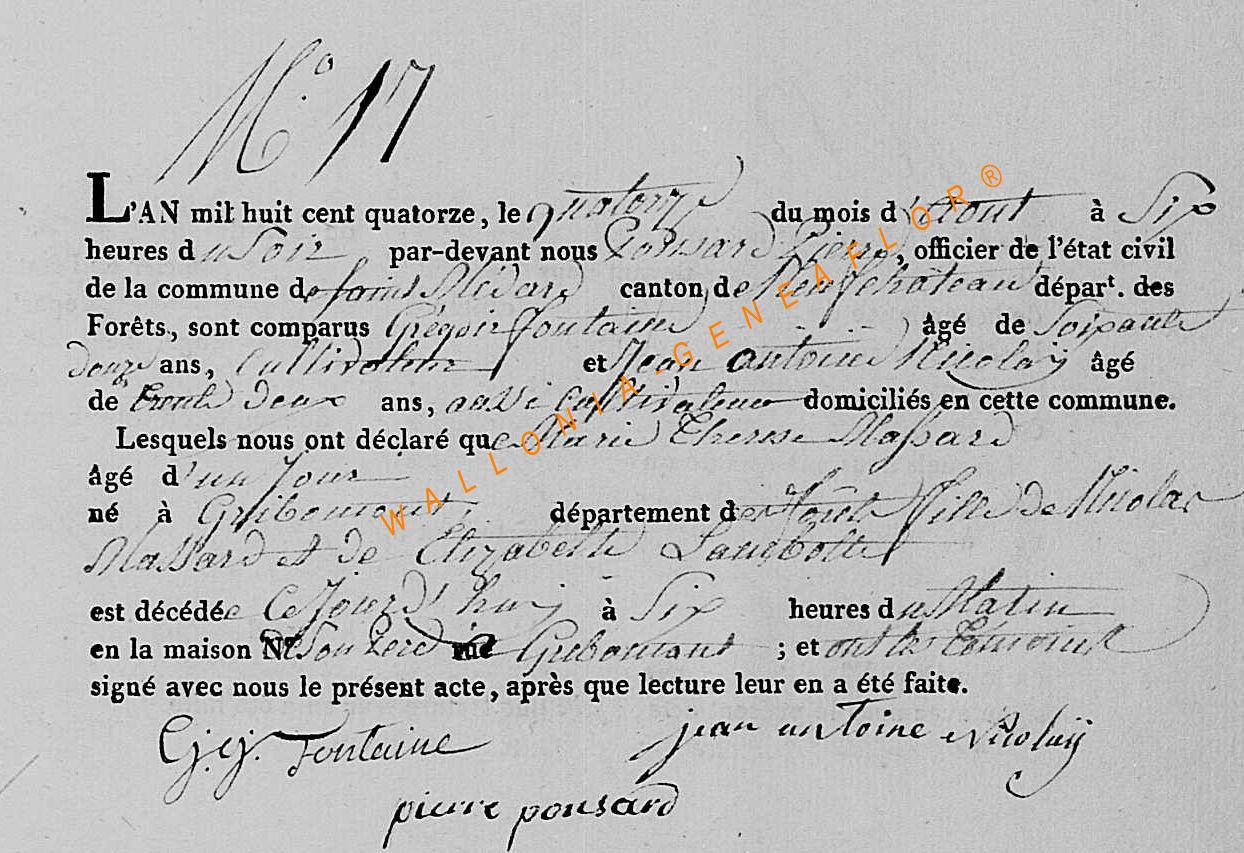 N.o 17
L'AN mil huit cent quatorze, le quatorze du mois d'Aout à Six
heures du Soir par-devant nous Ponsard Pierre, officier de l'état civil
de la commune de saint Médard canton de Neufchateau départ. des
Forêts, sont comparus Grégoir fontaine âgé de Soixante
douze ans, Cultivateur et Jean antoine Nicolaÿ âgé
de trente deux ans, aussi Cultivateur domiciliés en cette commune.
Lesquels nous ont déclaré que Marie Therese Massard
âgé d'un Jour
né à Gribomont département des forêts fille de Nicolas
Massard et de Elizabeth Lambotte
est décédée Ce Jourd'hui à Six heures du Matin
en la maison de Son Pere Gribomont ; et ont les témoins
signé avec nous le présent acte, après que lecture leur en a été faite.
G.g. Fontaine jean antoine Nicolaÿ
pierre ponsard
WALLONIA-GENEAFLOR®